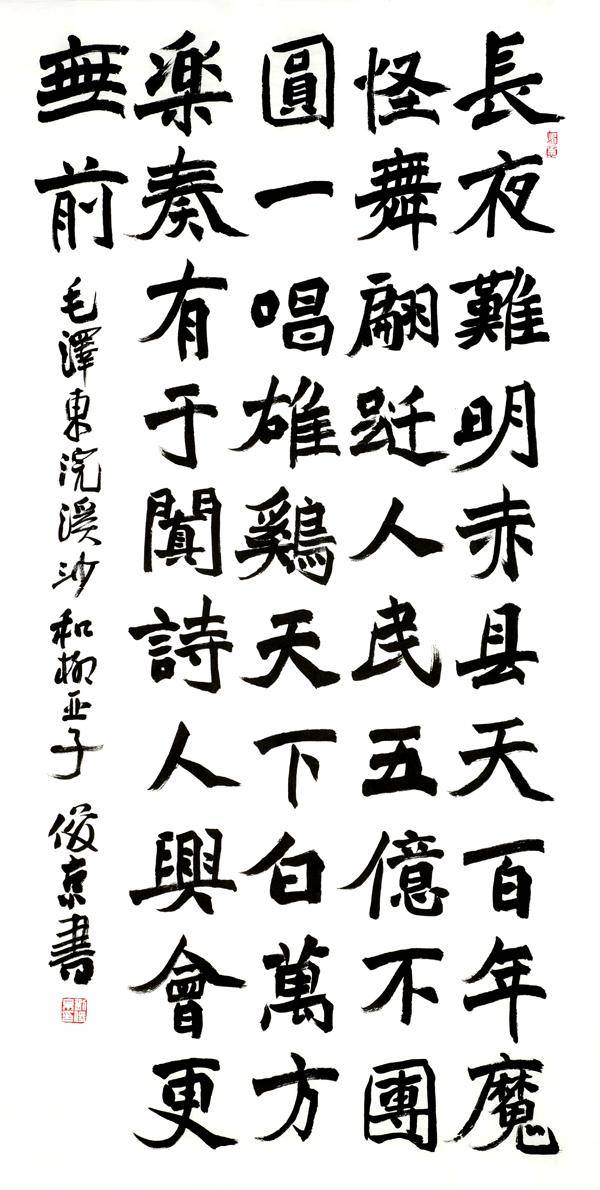 長夜難明赤县天百年魔
怪舞翩跹人民五億不團
圓一唱雄鷄天下白萬方
楽奏有于闐詩人興會更
無前 毛澤東浣溪沙和柳亚子 俊京書